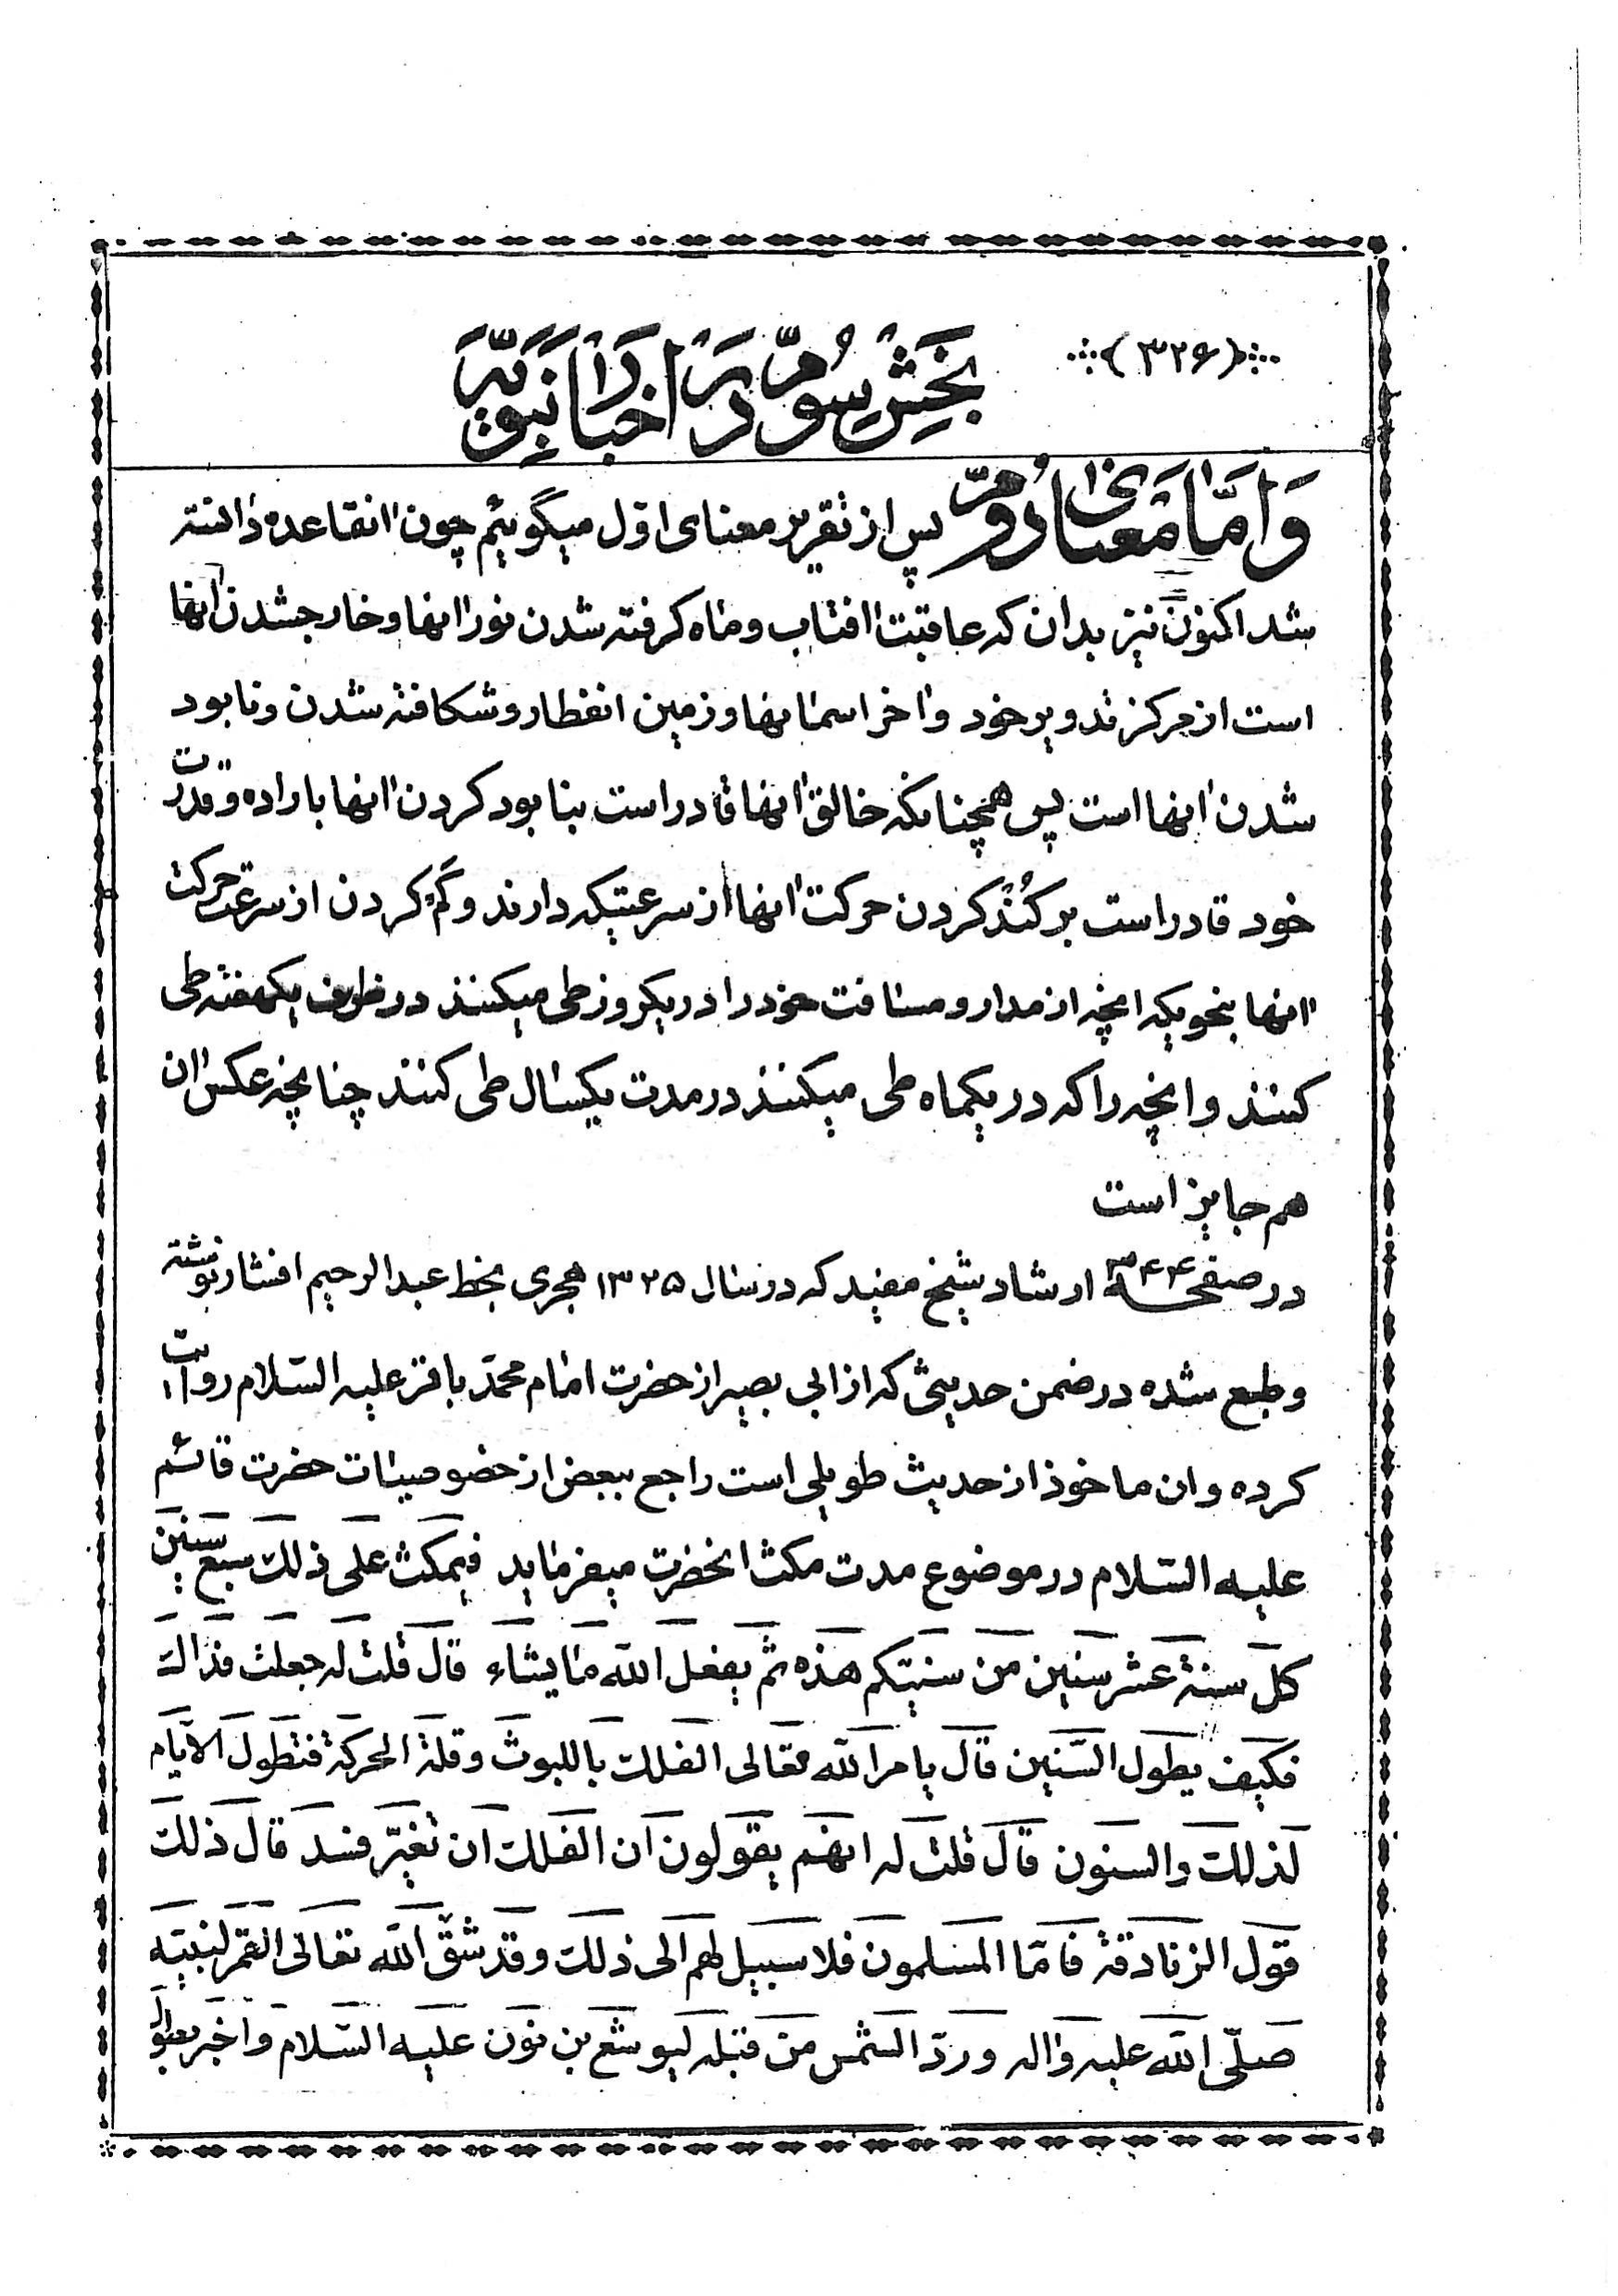 (۳۲۶)
بخش سوم در اخبار نبویه
و اما معنای دوم پس از تقریر معنای اول میگوئیم چون انقاعده دانسته
شد اکنون نیز بدان که عاقبت افتاب و ماه گرفته شدن نور انها و خارجشدن انها
است از مرکز تدویر خود و اخر اسمانها و زمین انفطار و شکافته شدن و نابود
شدن انها است پس همچنانکه خالق انها قادر است بنابود کردن انها باراده و قدرت
خود قادر است بر کُند کردن حرکت انها از سرعتیکه دارند و کم کردن از سرعت حرکت
انها بنحویکه انچه از مدار و مسافت خود را در یکروز طی میکنند در ظرف یکهفته طی
کنند و انچه را که در یکماه طی میکنند در مدت یکسال طی کنند چنانچه عکس ان
هم جایز است
در صفحه ۳۴۴ ارشاد شیخ مفید که در سال ۱۳۲۵ هجری بخط عبدالرحیم افشار نوشته
و طبع شده در ضمن حدیثی که از ابی بصیر از حضرت امام محمّد باقر علیه السّلام روایت
کرده و ان ماخوذ از حدیث طویلی است راجع ببعض از خصوصیات حضرت قائم
علیه السّلام در موضوع مدت مکث انحضرت میفرماید فیمکث علی ذلک سبع سنین
کل سنة عشر سنین من سنیکم هذه ثم یفعل الله ما یشاء قال قلت له جعلت فداک
فکیف یطول السّنین قال یامر الله تعالی الفلک باللبوث و قلة الحرکة فتطول الایام
لذلک والسنون قال قلت له انهم یقولون ان الفلک ان تغیّر فسد قال ذلک
قول الزنادقه فامّا المسلمون فلا سبیل لهم الی ذلک و قد شقّ الله تعالی القمر لنبیّه
صلّی الله علیه واله وردّ الشمس من قبله لیوشع بن نون علیه السّلام و اخبر بطول